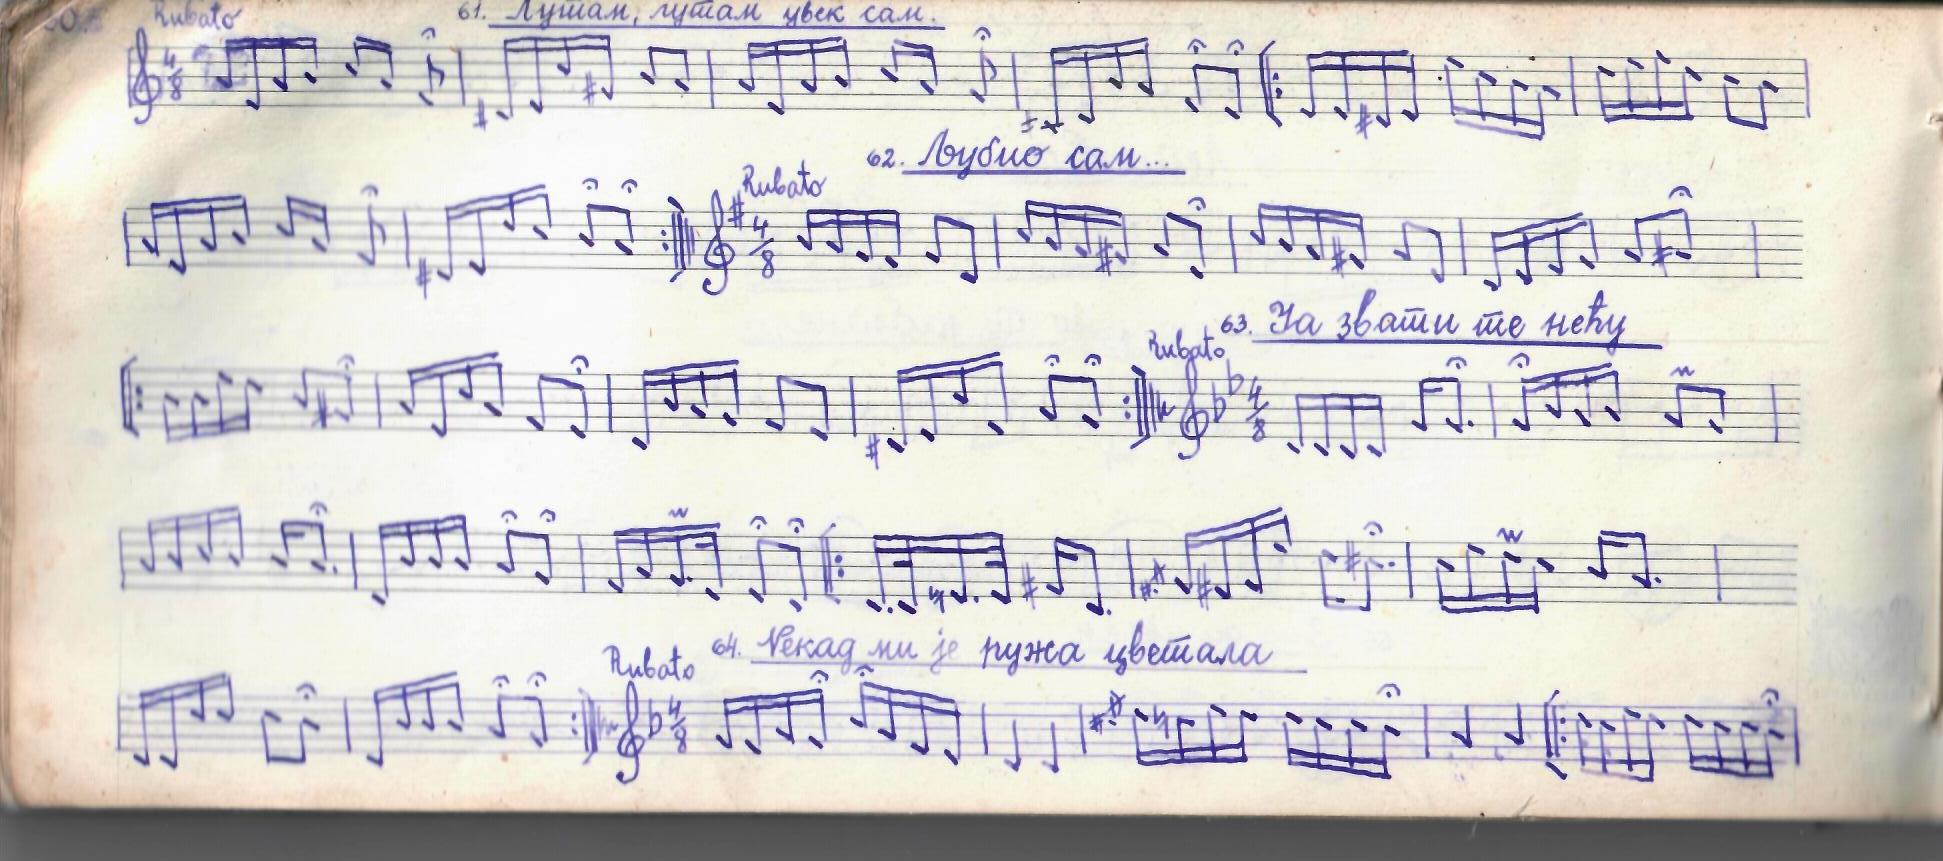 Rubato 61. Лутам, лутам цвек сам.
4/8
62. Љубио сам...
Rubato
4/8
63. Ја звати те нећу
Rubato
4/8
64. Некад ми је ружа цветала
Rubato
4/8